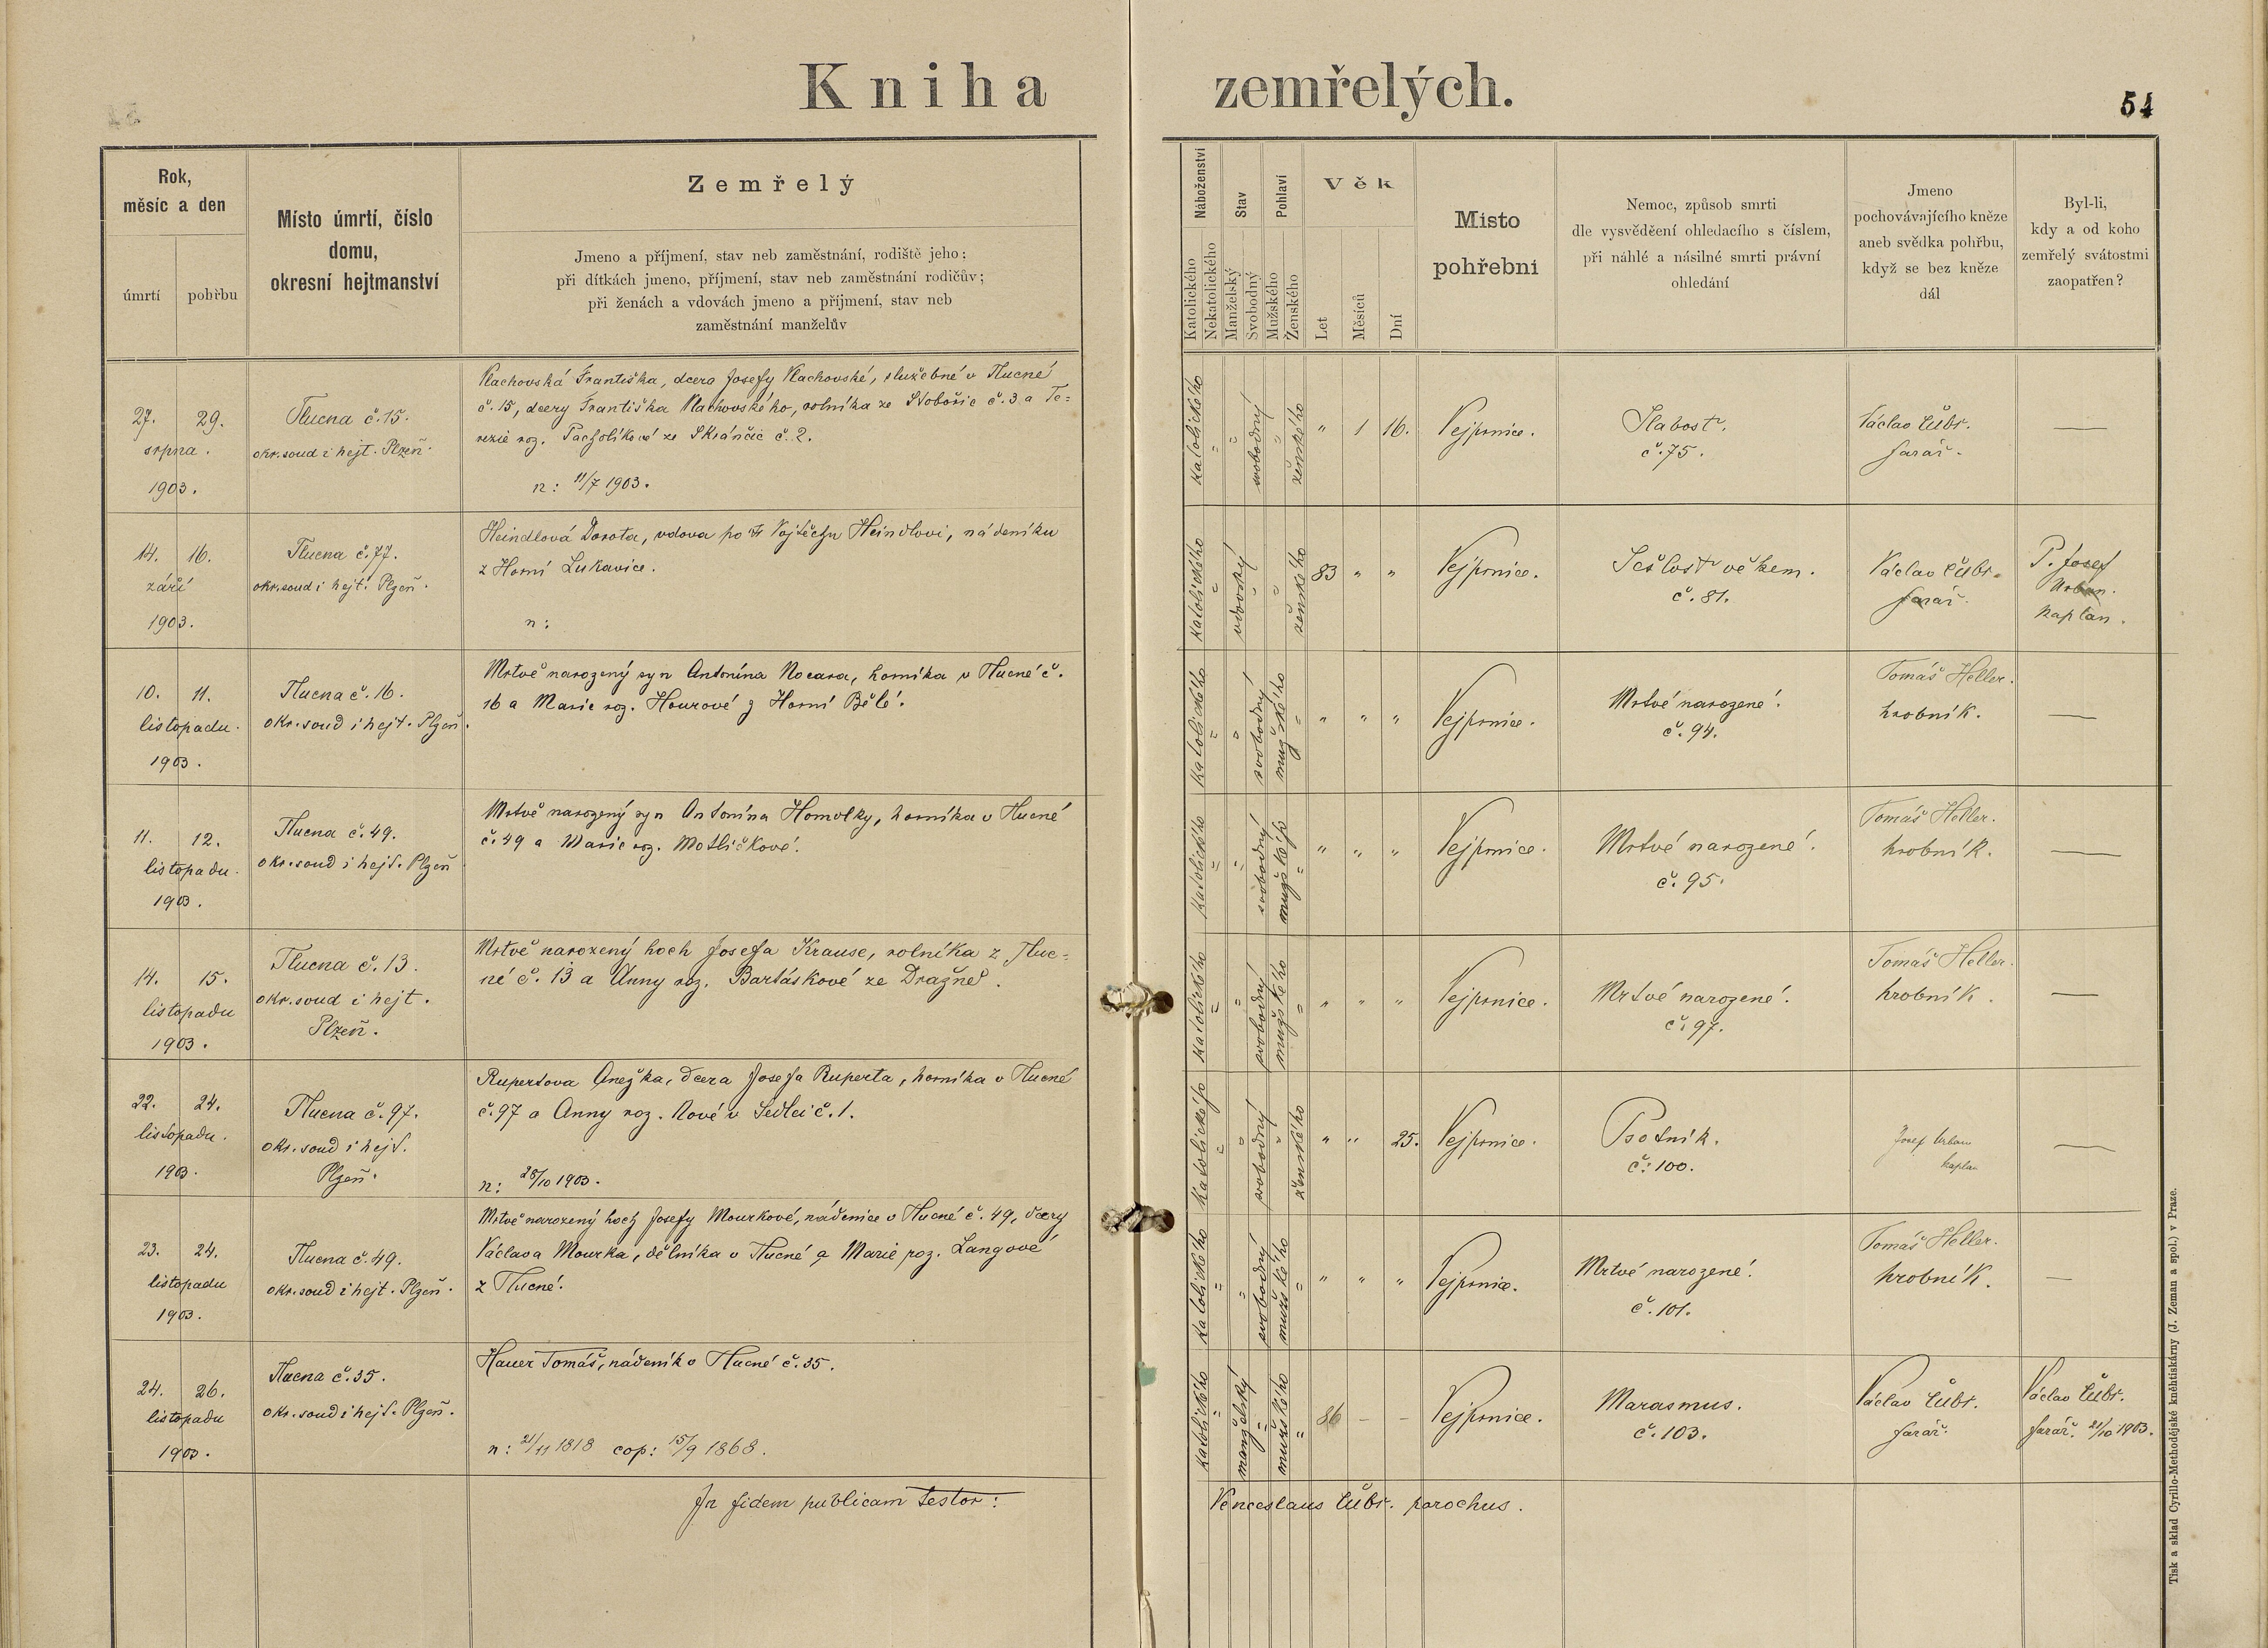 Kniha zemřelých.
54
Rok,
měsíc a den
úmrtí
pohřbu
Místo úmrtí, číslo
domu,
okresní hejtmanství
Zemřelý
Jmeno a příjmení, stav neb zaměstnání, rodiště jeho;
při dítkách jmeno, příjmení, stav neb zaměstnání rodičův;
při ženách a vdovách jmeno a příjmení, stav neb
zaměstnání manželův
Náboženství
Katolického
Nekatolického
Stav
Manželský
Svobodný
Pohlaví
Mužského
Ženského
Věk
Let
Měsíců
Dní
Místo
pohřební
Nemoc, způsob smrti
dle vysvěděení ohledacího s číslem,
při náhlé a násilné smrti právní
ohledání
Jmeno
pochovávajícího kněze
aneb svědka pohřbu,
když se bez kněze
dál
Byl-li,
kdy a od koho
zemřelý svátostmi
zaopatřen?
27. 29.
srpna.
1903.
Tlucna č. 15.
okr. soud i hejt. Plzeň.
Vlachovská Františka, dcera Josefy Vlachovské, služebné v Tlucné
č. 15, dcery Františka Vlachovského, rolníka ze č. 3 a Te=
rezie roz. ze č. 2.
n: 11/7 1903.
katolického
svobodný
ženského
" 1 16.
Vejprnice.
Slabost.
č. 75.
Václav Čůbr.
farář.
—
14. 16.
září
1903.
Tlucna č. 77.
okr. soud i hejt. Plzeň.
Heindlová Dorota, vdova po † Vojtěchu Heindlovi, nádeníku
z Horní Lukavice.
n:
katolického
vdovský
ženského
83 " "
Vejprnice.
Sešlost věkem.
č. 81.
Václav Čůbr.
farář.
P. Josef
Urban.
kaplan.
10. 11.
listopadu.
1903.
Tlucna č. 16.
okr. soud i hejt. Plzeň.
Mrtvě narozený syn Antonína Nocara, horníka v Tlucné č.
16 a Marie roz. Hourové z Horní Bělé.
katolického
svobodný
mužského
" " "
Vejprnice.
Mrtvé narozené.
č. 94.
Tomáš Heller.
hrobník.
—
11. 12.
listopadu.
1903.
Tlucna č. 49.
okr. soud i hejt. Plzeň
Mrtvě narozený syn Antonína Homolky, horníka v Tlucné
č. 49 a Marie roz. Motličkové.
katolického
svobodný
mužského
" " "
Vejprnice.
Mrtvé narozené.
č. 95.
Tomáš Heller.
hrobník.
—
14. 15.
listopadu
1903.
Tlucna č. 13.
okr. soud i hejt.
Plzeň.
Mrtvě narozený hoch Josefa Krause, rolníka z Tluc=
né č. 13 a Anny roz. Bartáskové ze Dražně.
katolického
svobodný
mužského
" " "
Vejprnice.
Mrtvé narozené.
č. 97.
Tomáš Heller.
hrobník.
—
22. 24.
listopadu.
1903.
Tlucna č. 97.
okr. soud i hejt.
Plzeň.
Rupertova Anežka, dcera Josefa Ruperta, horníka v Tlucné
č. 97 a Anny roz. Nové v Sedlci č. 1.
n: 28/10 1903.
katolického
svobodný
ženského
" " 25.
Vejprnice.
Psotník.
č. 100.
Josef Urban
kaplan
—
23. 24.
listopadu
1903.
Tlucna č. 49.
okr. soud i hejt. Plzeň.
Mrtvě narozený hoch Josefy Mourkové, nádenice v Tlucné č. 49, dcery
Václava Mourka, dělníka v Tlucné a Marie roz. Langové
z Tlucné.
katolického
svobodný
mužského
" " "
Vejprnice.
Mrtvé narozené.
č. 101.
Tomáš Heller.
hrobník.
—
24. 26.
listopadu
1903.
Tlucna č. 35.
okr. soud i hejt. Plzeň.
Hauer Tomáš, nádeník v Tlucné č. 35.
n: 21/11 1818 cop: 15/9 1868.
katolického
manželský
mužského
86 – –
Vejprnice.
Marasmus.
č. 103.
Václav Čůbr.
farář.
Václav Čůbr.
farář. 21/10 1903.
In fidem publicam testor:
Venceslaus Čůbr. parochus.
Tisk a sklad Cyrillo-Methodějské kněhtiskárny (J. Zeman a spol.) v Praze.